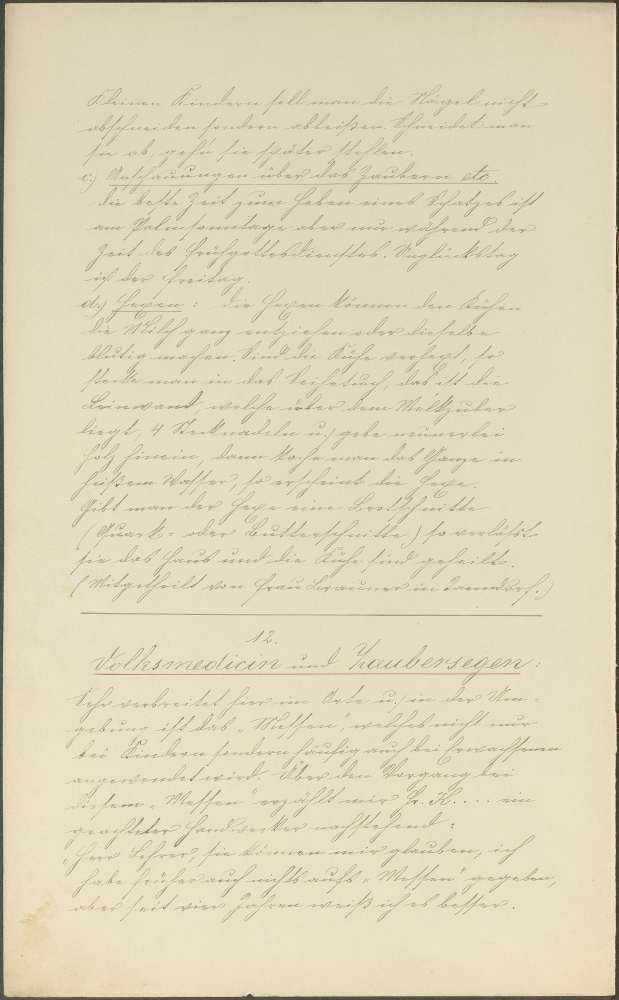 Kleinen Kindern soll man die Nägel nicht
abschneiden sondern abbeißen. Schneidet man
sie ab, geh'n sie später stehlen.
c.) Anschauungen über das Zaubern etc.
Die beste Zeit zum Heben eines Schatzes ist
am Palmsonntage aber nur während der
Zeit des Frühgottesdienstes. Unglückstag
ist der Freitag.
d.) Hexen: Die Hexen können den Kühen
die Milch ganz entziehen oder dieselbe
blutig machen. Sind die Kühe verhext, so
stecke man in das Seihetuch, das ist die
Leinwand, welche über dem Melkzuber
liegt, 4 Stecknadeln u. gebe neunerlei
Holz hinein, dann koche man das Ganze in
heißem Wasser, so erscheint die Hexe.
Gibt man der Hexe eine Brotschnitte
(Quark- oder Butterschnitte) so verläßt
sie das Haus und die Kühe sind geheilt.
(Mitgetheilt von Frau Brauner in)
12.
Volksmedicin und Zaubersegen:
Sehr verbreitet hier im Orte u. in der Um-
gebung ist das „Messen", welches nicht nur
bei Kindern sondern häufig auch bei Erwachsenen
angewendet wird. Über den Vorgang bei
diesem „Messen" erzählt mir Hr. K.... ein
geachteter Handwerker nachstehend:
„Herr Lehrer, sie können mir glauben, ich
habe früher auch nichts aufs „Messen" gegeben,
aber seit vier Jahren weiß ich es besser.